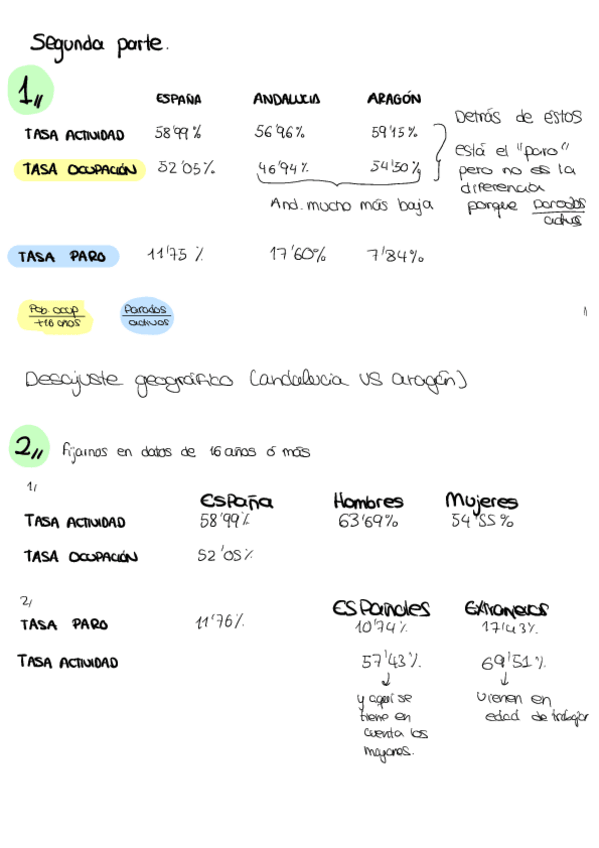 Segunda parte.
1,,
ESPAÑA ANDALUCIA ARAGÓN
TASA ACTIVIDAD 58'99% 56'96% 59'15%
TASA OCUPACIÓN 52'05% 46'94% 54'50%
And. mucho más baja
Detrás de estos
está el "paro"
pero no es la
diferencia
porque parados
activos
TASA PARO 11'75 % 17'60% 7'84%
Pob. ocup
+16 años
Parados
activos
Desajuste geográfico (andalucia VS aragón)
2,, fijarnos en datos de 16 años ó más
1,
España Hombres Mujeres
TASA ACTIVIDAD 58'99% 63'69% 54'55%
TASA OCUPACIÓN 52'05%
2,
Españoles Extranjeros
TASA PARO 11'76% 10'74% 17'43%
TASA ACTIVIDAD 57'43% 69'51%
y aquí se
tiene en
cuenta los
mayores.
vienen en
edad de trabajar